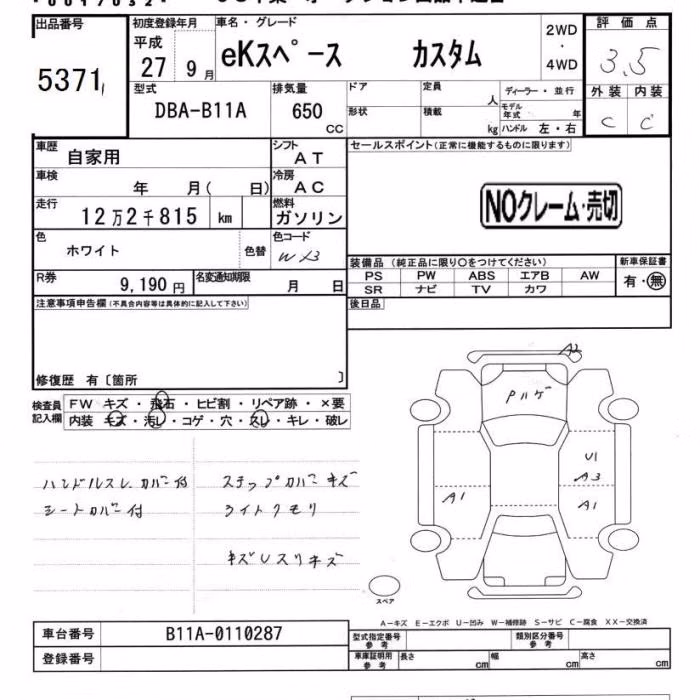 出品番号 初度登録年月 車名・グレード 2WD ・ 4WD 評価点
5371 平成 27年 9月 eKスペース カスタム 3.5
型式 排気量 ドア 定員 人 ディーラー・並行 外装 内装
DBA-B11A 650 CC 形状 積載 kg モデル年式 年 C C
ハンドル 左・右
車歴 自家用 シフト AT セールスポイント(正常に機能するものに限ります)
車検 年 月( 日) 冷房 AC
走行 12万2千815 km 燃料 ガソリン NOクレーム・売切
色 ホワイト 色替 色コード
装備品 (純正品に限り○をつけてください) 新車保証書
R券 9,190円 名変通知期限 月 日 PS PW ABS エアB AW 有・無
SR ナビ TV カワ
注意事項申告欄(不具合内容等は具体的に記入して下さい) 後日品
修復歴 有〔箇所 〕
検査員記入欄 FW キズ・飛石・ヒビ割・リペア跡・×要
内装 キズ・汚レ・コゲ・穴・スレ・キレ・破レ
A2
Pハゲ
U1
A3
A1 A1
ハンドルスレ カバー付 ステップカバーキズ
シートカバー付 ライトクモリ
スペア
A-キズ E-エクボ U-凹み W-補修跡 S-サビ C-腐食 XX-交換済
車台番号 B11A-0110287 型式指定番号 参考 類別区分番号 参考
登録番号 車庫証明用 参考 長さ cm 幅 cm 高さ cm